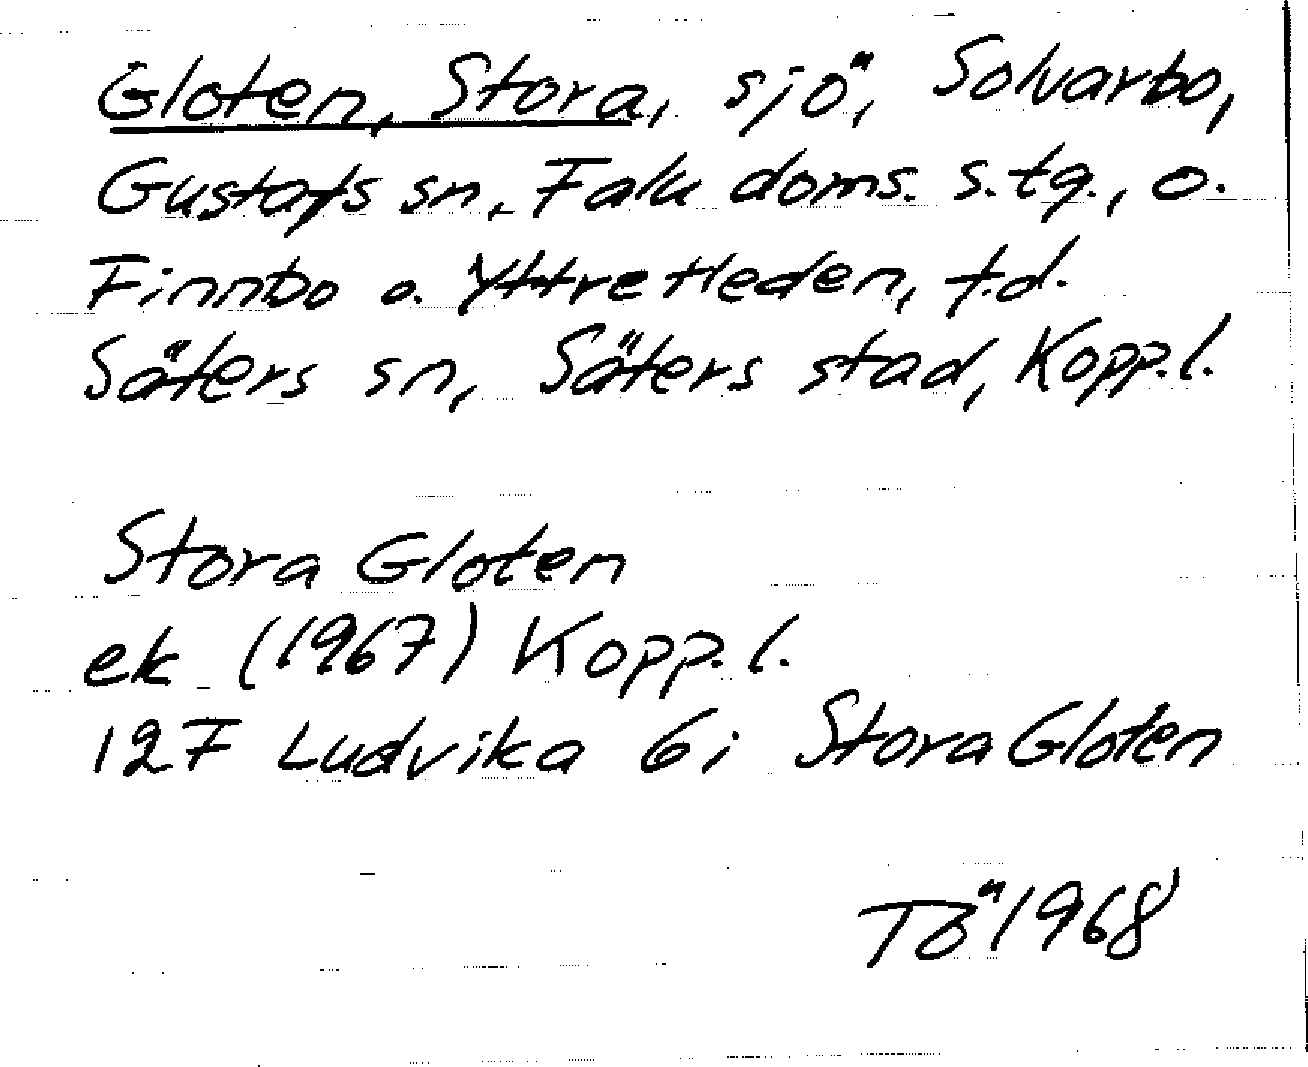 Gloten, Stora, sjö, Solvarbo,
Gustafs sn, Falu doms. s. tg., o.
Finnbo o. Yttre Heden, f.d.
Säters sn, Säters stad, Kopp.l.
Stora Gloten
ek (1967) Kopp.l.
127 Ludvika 6i Stora Gloten
TÖ 1968